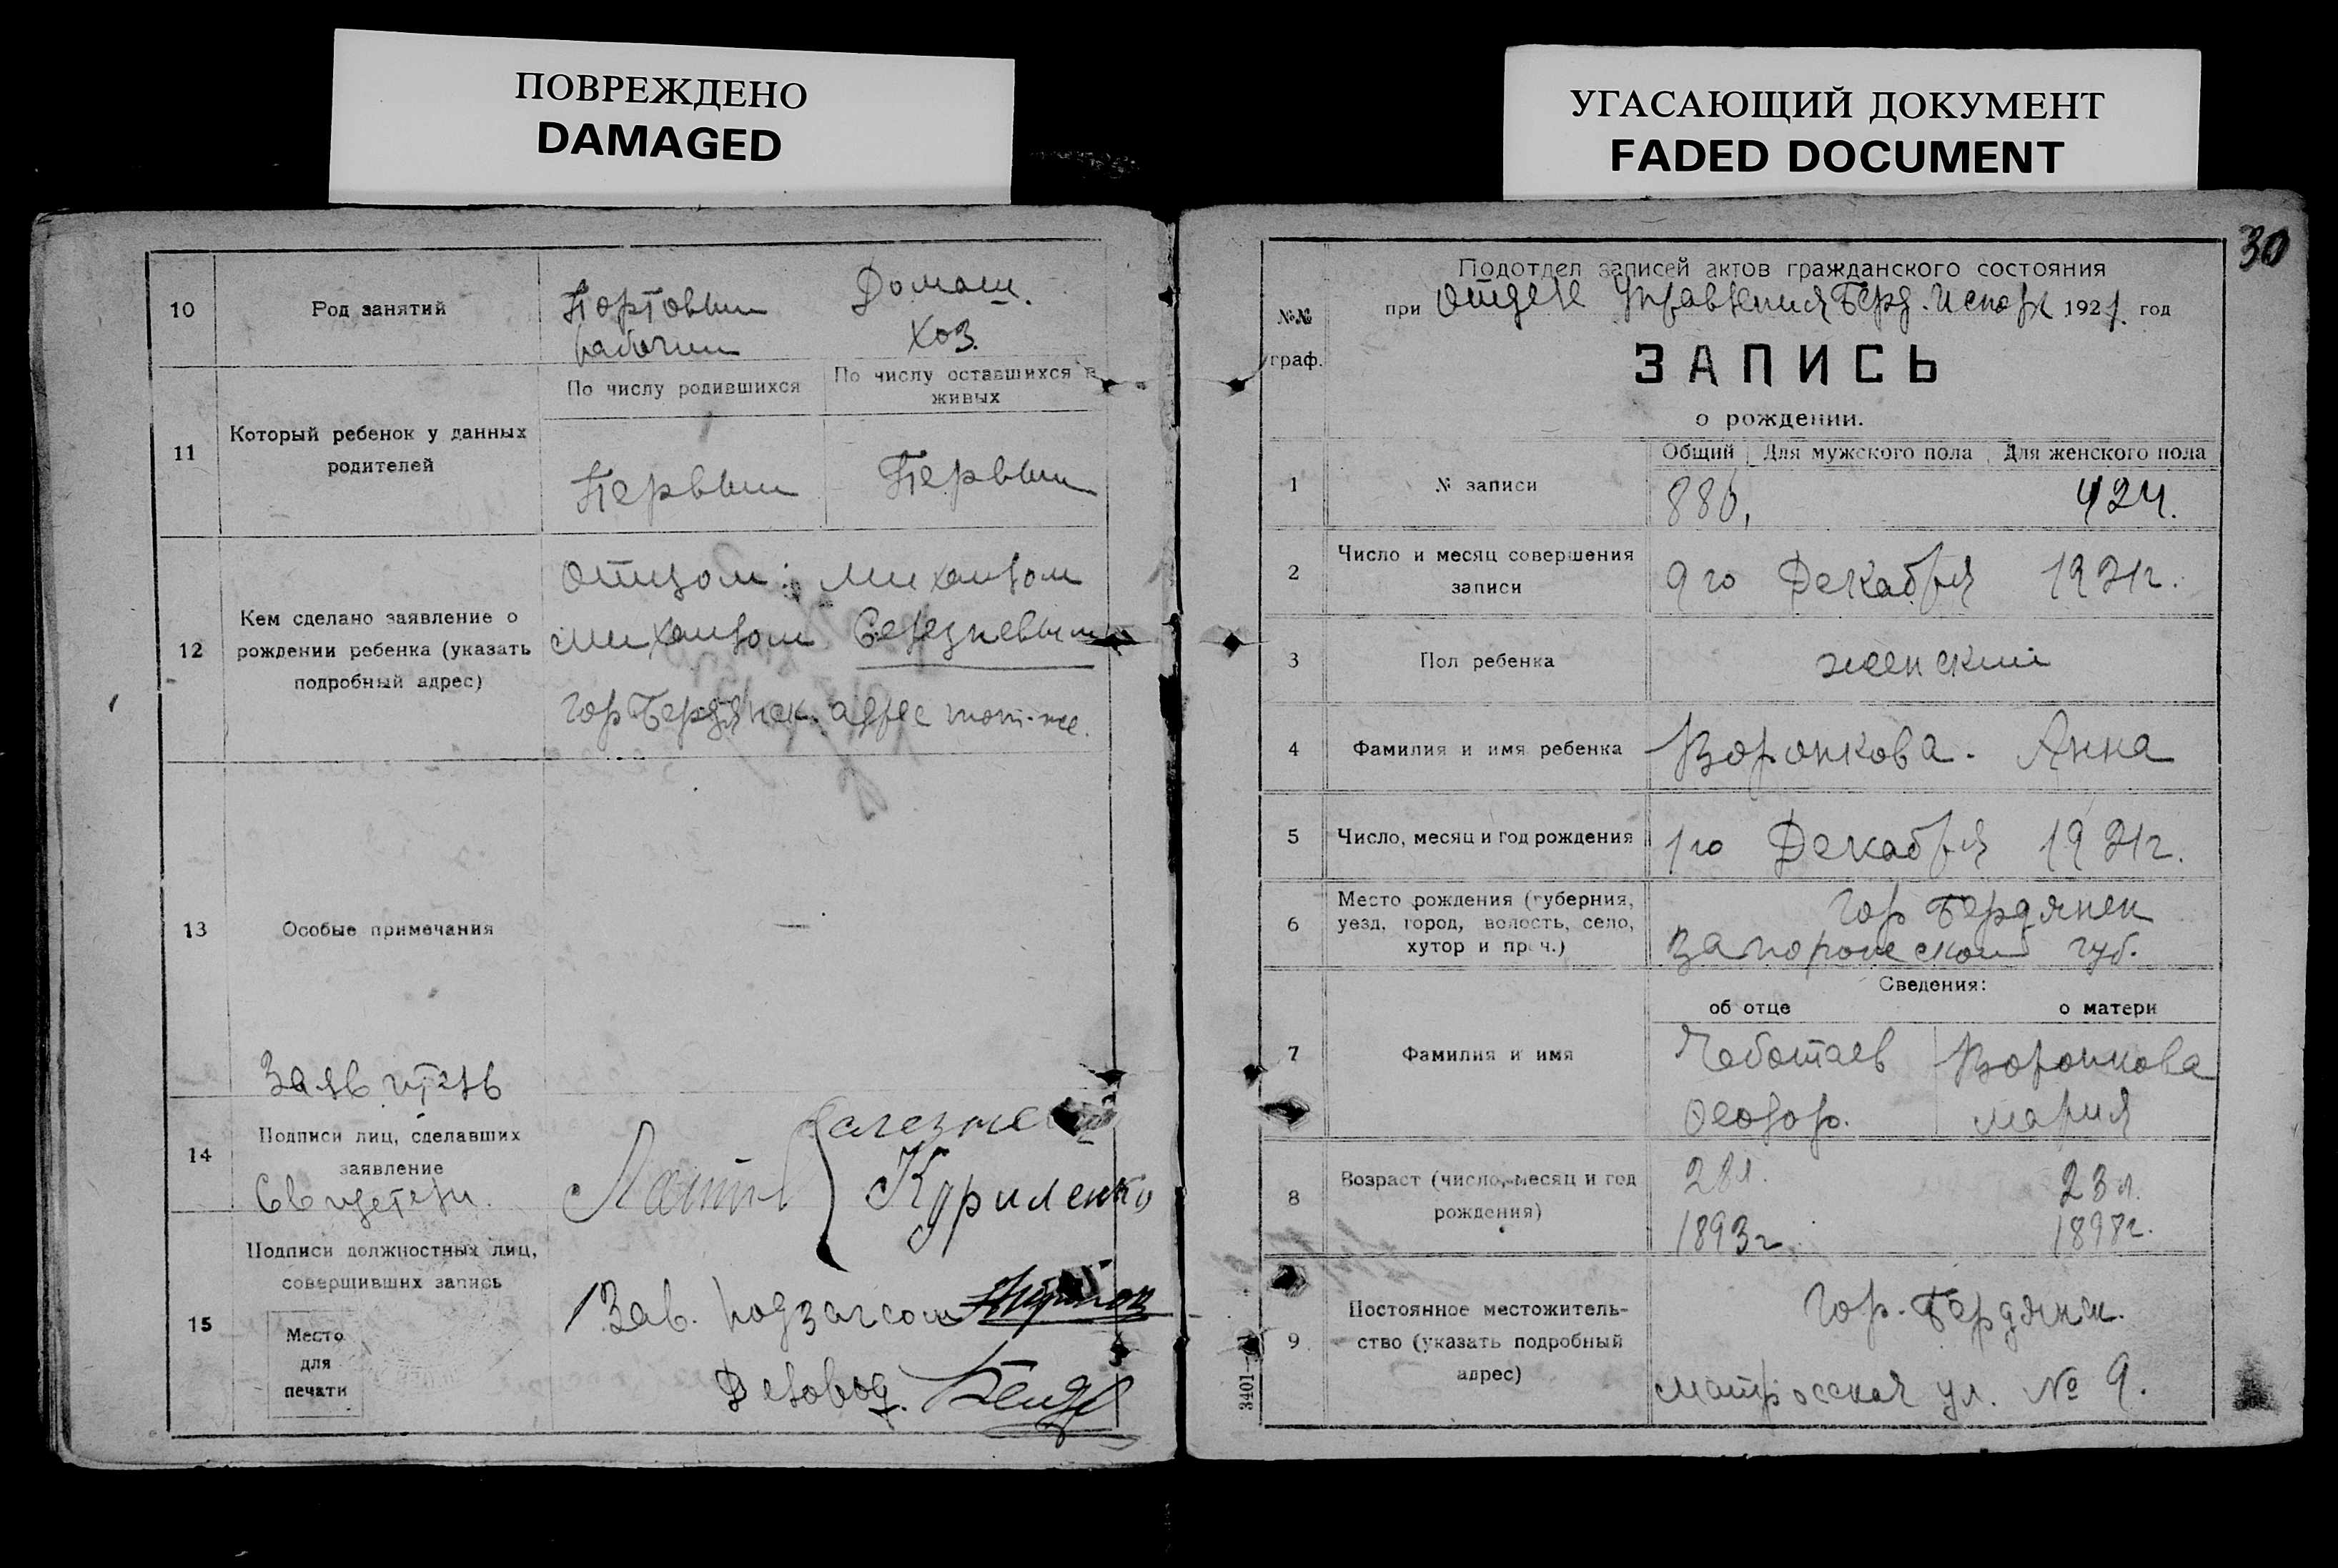 ПОВРЕЖДЕНО
DAMAGED
УГАСАЮЩИЙ ДОКУМЕНТ
FADED DOCUMENT
10
Род занятий
Портовый
рабочий
Домаш.
Хоз.
11
Который ребенок у данных
родителей
По числу родившихся
По числу оставшихся в
живых
Первый
Первый
12
Кем сделано заявление о
рождении ребенка (указать
подробный адрес)
Отцом: Михаилом
Михаилом Селезневым
Гор Бердянск. адрес тот-же.
13
Особые примечания
—
Заявитель
14
Подписи лиц, сделавших
заявление
Свидетели.
Куриленко
15
Подписи должностных лиц,
совершивших запись
Место
для
печати
Зав. подзагсом
Деловод.
30
№№
граф.
Подотдел записей актов гражданского состояния
при Отделе Управления Берд. Исполк 1921 год
ЗАПИСЬ
о рождении.
1
№ записи
Общий
Для мужского пола
Для женского пола
886,
424.
2
Число и месяц совершения
записи
9го Декабря 1921г.
3
Пол ребенка
женский
4
Фамилия и имя ребенка
Воронкова. Анна
5
Число, месяц и год рождения
1го Декабря 1921г.
6
Место рождения (губерния,
уезд, город, волость, село,
хутор и проч.)
Гор Бердянск
Запорожской губ.
Сведения:
об отце
о матери
7
Фамилия и имя
Чеботаев
Феодор.
Воронкова
Мария
8
Возраст (число, месяц и год
рождения)
28л.
1893г.
23л.
1898г.
9
Постоянное местожитель-
ство (указать подробный
адрес)
Гор. Бердянск.
Матросская ул. № 9.
3401